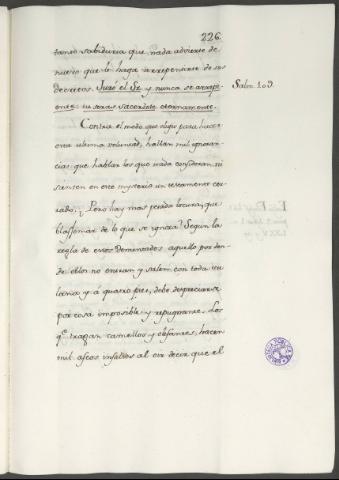 226.
tanta sabiduria que nada advierte de
nuevo que le haga arrepentirse de sus
decretos. Juró el Sr. y nunca se arrepi-
ente: tu seras sacerdote eternamente.
Salm. 109.
Contra el modo que elijio para hacer
esta ulterior voluntad, hallan mil ignoran-
cias que hablar los que nada consideran, ni
sienten en este mysterio un testamento cer-
rado. Pero hay mas pesada locura, que
blasfemar de lo que se ignora? Segun la
regla de estos Dementados aquello por don-
de ellos no entran y salen con toda su
licencia y á quatro pies, debe despreciarse
por cosa imposible y repugnante. Los
q.e tragan camellos y elefantes, hacen
mil ascos infelices al oir decir que el